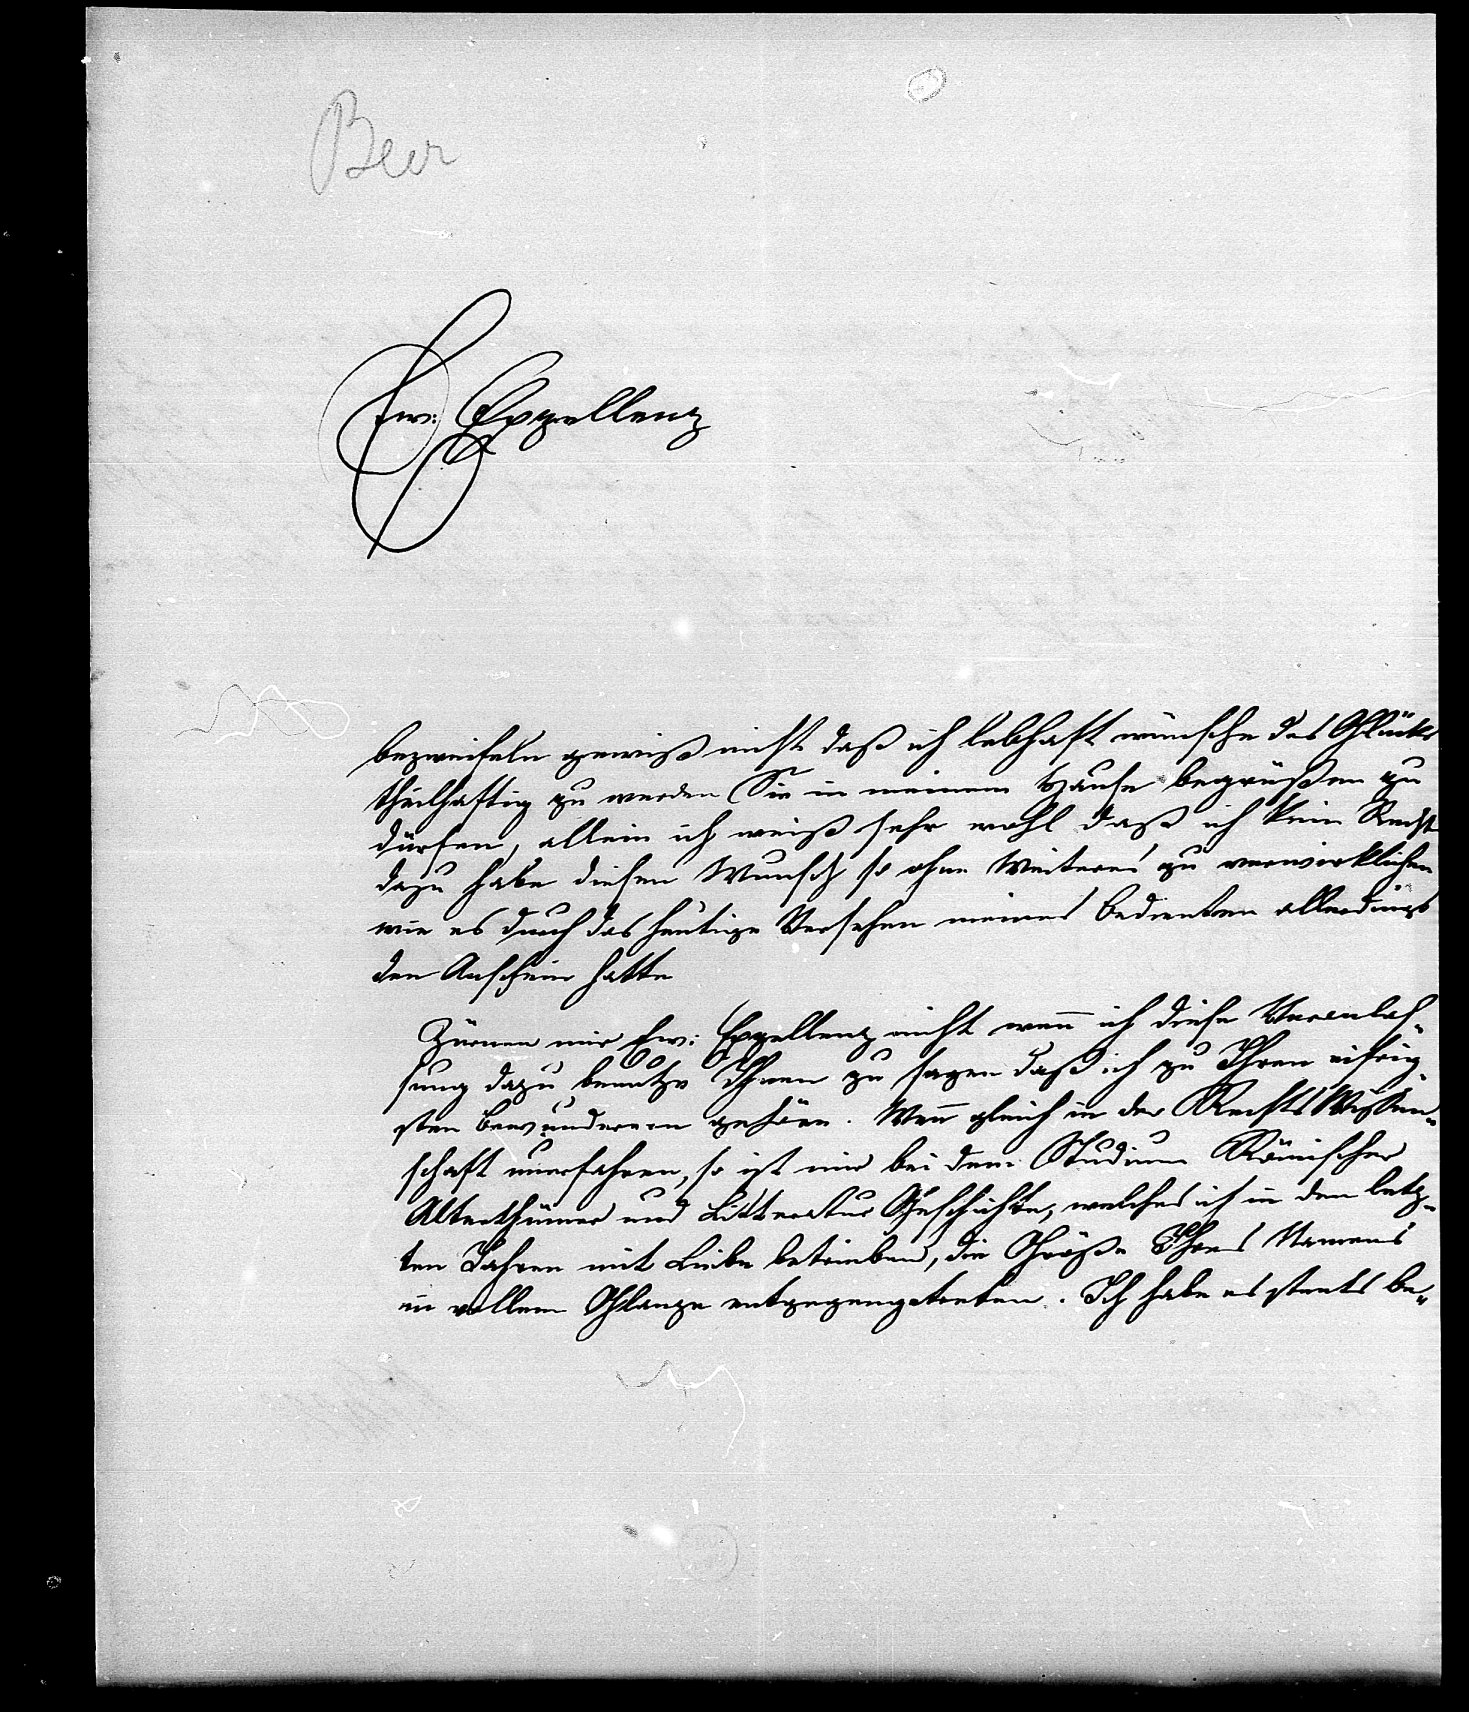 Beer
Ew: Exzellenz
bezweifeln gewiß nicht daß ich lebhaft wünsche des Glücks
theilhaftig zu werden Sie in meinem Hause begrüßen zu
dürfen, allein ich weiß sehr wohl daß ich kein Recht
dazu habe diesen Wunsch so ohne Weiteres zu verwirklichen
wie es durch das heutige Versehen meines Bedienten allerdings
den Anschein hatte
Zürnen mir Ew: Exzellenz nicht wenn ich diese Veranlas-
sung dazu benutze Ihnen zu sagen daß ich zu Ihren eifrig-
sten Bewunderern gehöre. Wenn gleich in der Rechts Wissen-
schaft unerfahren, so ist mir bei dem Studium Römischer
Alterthümer und Litteratur Geschichte, welches ich in den letz-
ten Jahren mit Liebe betrieben, die Größe Ihres Namens
in vollem Glanze entgegengetreten. Ich habe es steets be-